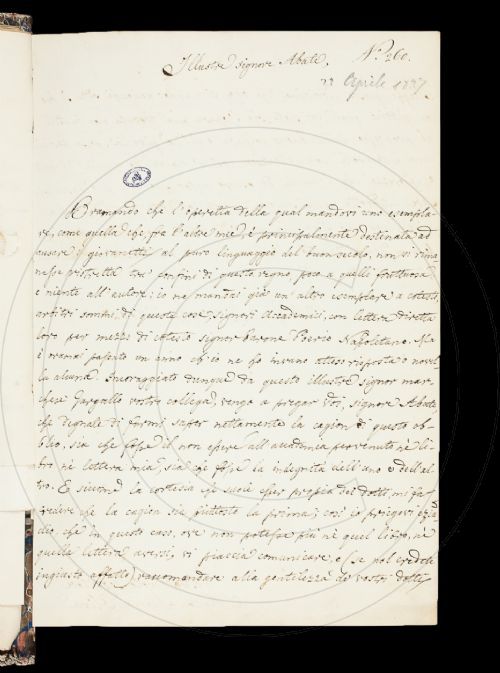 Nº 260.
Illustre signore Abate.
22 Aprile 1837
Bramando che l'operetta della qual mandovi uno esempla-
re, come quella che, fra l'altre mie, è principalmente destinata ad
ausare i giovanetti al puro linguaggio del buon secolo, non si rima-
nesse ristretta tra' confini di questo regno poco a quelli fruttuosa
e niente all'autore; io ne mandai già un altro esemplare a cotesti,
arbitri sommi, di queste cose signori Accademici, con lettera diretta
loro per mezzo di cotesto signor barone Poerio Napoletano. Ma
è oramai passato un anno ch'io ne ho invano atteso risposta o novel-
la alcuna. Incoraggiato dunque da questo illustre signor mar-
chese Gargallo vostro collega, vengo a pregar voi, signore Abate,
che degnate di farmi saper nettamente la cagion di questo ob-
blio, sia che fosse il non essere all'accademia pervenuto nè li-
bro nè lettera mia, sia che fosse la indegnità dell'uno o dell'al-
tro. E siccome la cortesia che suole esser propria dei dotti, mi fa
credere che la cagion sia piuttosto la prima; così vi pregerei ezian-
dio che in questo caso, ove non potesse più nè quel libro, nè
quella lettera aversi, vi piaccia comunicare, o (se nol credete
ingiusto affatto) raccomandare alla gentilezza de' vostri dotti